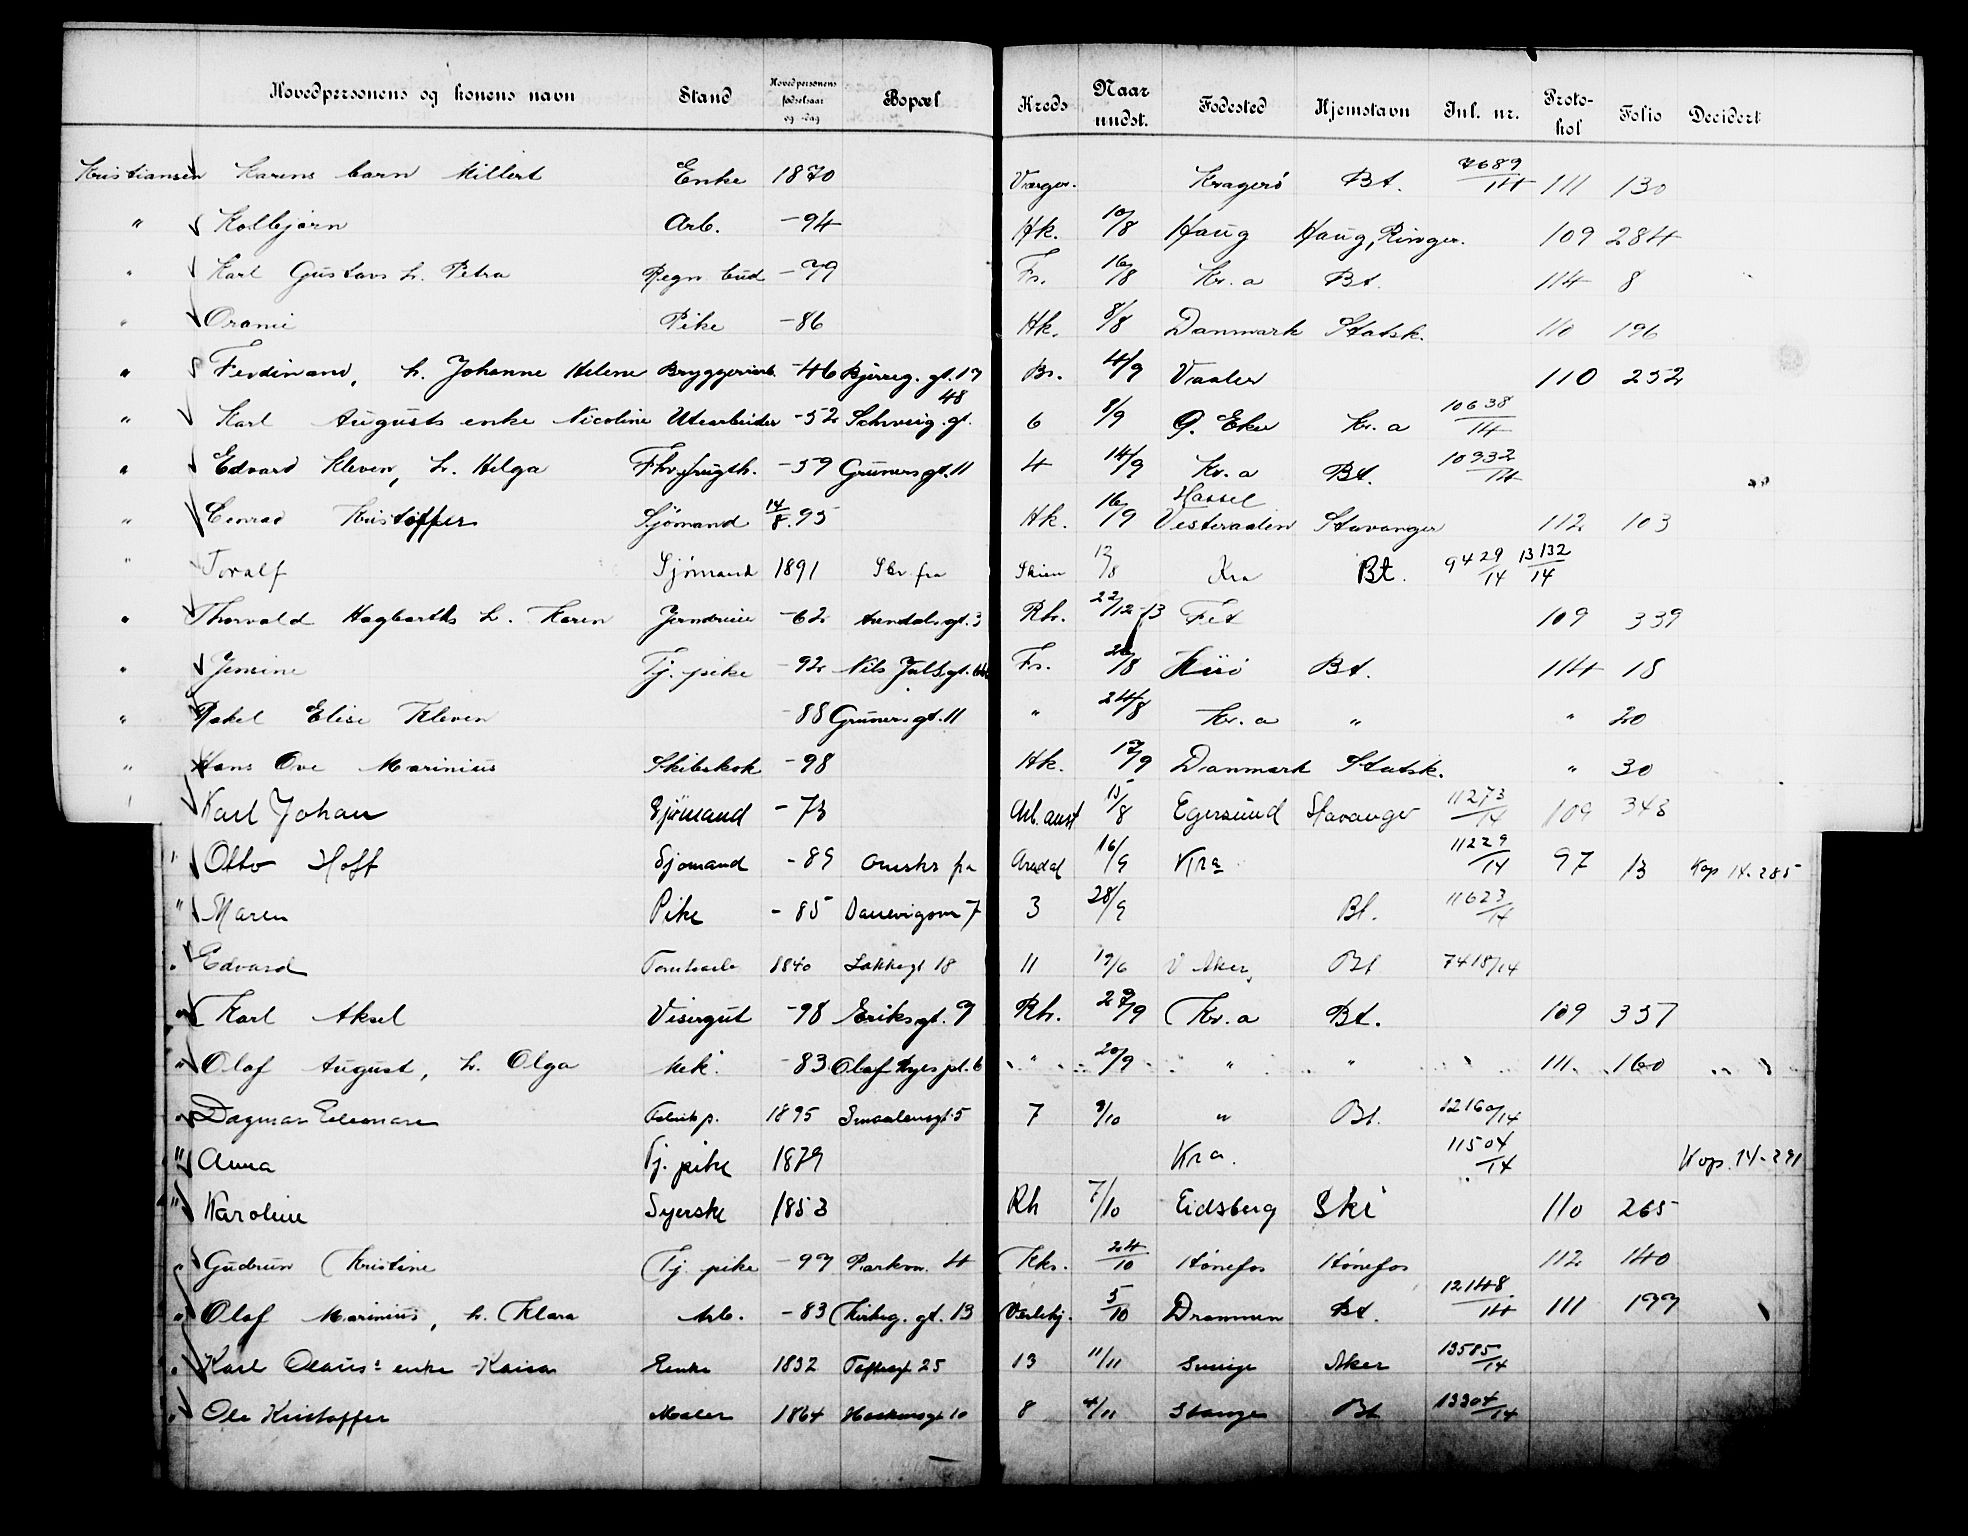 Hovedpersonens og konens navn Stand Hovedpersonens fødselsaar og -dag Bopæl Kreds Naar undst. Fødested Hjemstavn Inl. nr. Proto-kol Folio Decidert
Kristiansen Karens barn Enke 1870 Værger. Kragerø Bt. 7689/14 111 130
" Kolbjørn Arb. -94 Hk. 10/8 Haug Haug, Ringer. 109 284
" Karl Gustavs h. Petra Regn. bud -79 Fr. 16/8 Kr.a Bt. 114 8
" Orami Pike -86 Hk. 8/8 Danmark Statsk. 110 196
" Ferdinand, h. Johanne Helene Bryggeriarb. -46 Bjerreg. gt. 17 Br. 4/9 Vaaler 110 252
" Karl Augusts enke Nicoline Utearbeider -52 Schweig. gt. 48 6 8/9 Ø. Eker Kr.a 10638/14
" Edvard Kleven, h. Helga -59 Gruners gt. 11 4 14/9 Kr.a Bt. 10932/14
" Conrad Kristoffer Sjømand 14/8.95 Hk. 16/9 Hassel Vesteraalen Stavanger 112 103
" Toralf Sjømand 1891 Skr. fra Skien 12/8 Kra Bt. 9429/14 13132/14
" Thorvald Hagbarths h. Karen Jerndreier -62 Arendalsgt. 3 Rh. 22/12-13 Fet 109 339
" Jensine Tj. pike -92 Nils Juls gt. Fr. 20/8 Bt. 114 18
" Rakel Elise Kleven -88 Gruners gt. 11 " 24/8 Kr.a " " 20
" Hans Ove Marinius Skibskok -98 Hk. 17/9 Danmark Statsk. " 30
" Karl Johan Sjömand -73 Arb. anst 15/8 Egersund Stavanger 11273/14 109 343
" Otto Hoff Sjømand -89 Ønskes fra Arendal 16/9 Kra 11229/14 97 13 Kop 14-285
" Maren Pike -85 7 3 28/9 Bt. 11623/14
" Edvard 1840 Lakkegt 18 11 19/6 V Aker Bt 7418/14
" Karl Aksel Visergut -98 Eriksgt. 9 Rh. 29/9 Kr.a Bt. 109 337
" Olaf August, h. Olga Mek. -83 Olaf Ryes pl. 6 " 20/9 " " 111 160
" Dagmar Eleonare Fabrikp. 1895 Smaalensgt 5 7 9/10 " Bt. 12160/14
" Anna Tj. pike 1879 Kra. 11504/14 Kop. 14-291
" Karoline Syerske 1853 Rh 7/10 Eidsberg Ski 110 265
" Gudrun Kristine Tj. pike -97 Parkvn. 4 Kks. 24/10 Hønefos Hønefos 112 140
" Olaf Marinius, h. Klara Arb. -83 Kirkeg. gt. 13 Vestehj. 5/10 Drammen Bt. 12148/14 111 199
" Karl Olaus' enke Kaisa Enke 1832 Toftesgt 25 13 11/11 Sverige Aker 13585/14
" Ole Kristoffer Maler 1864 Hackensgt 10 8 4/11 Stange Bt 13304/14